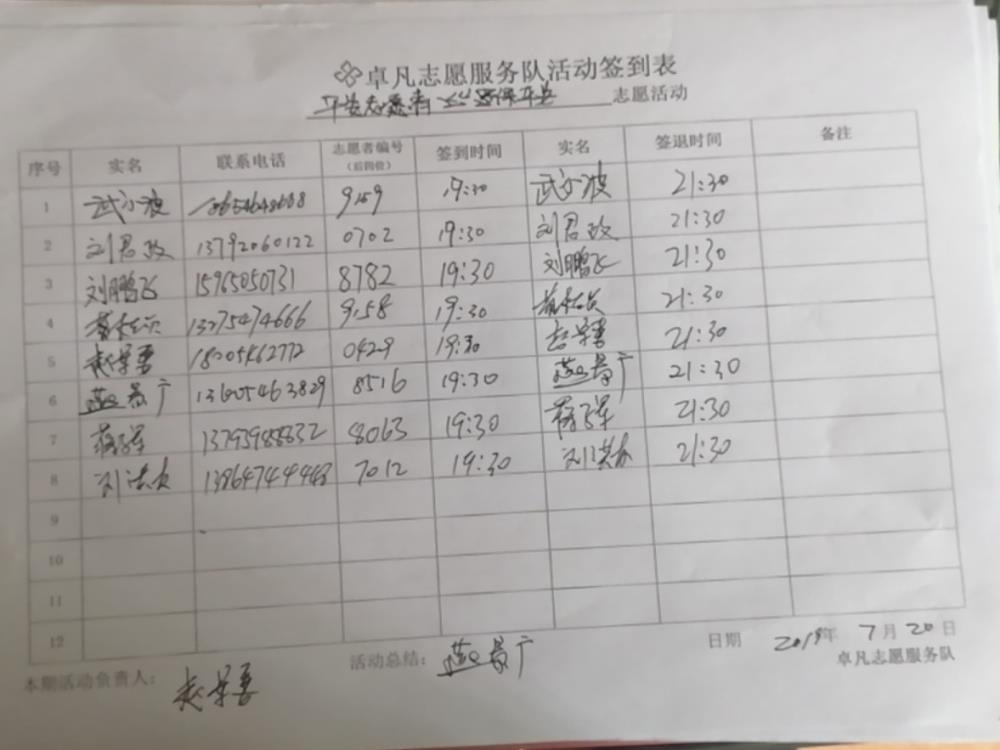 卓凡志愿服务队活动签到表
平安志愿者 保平安 志愿活动
序号 实名 联系电话 志愿者编号（后四位） 签到时间 实名 签退时间 备注
1 武 波 9159 19:30 武 波 21:30
2 刘君政 13792060122 0702 19:30 刘君政 21:30
3 刘鹏飞 15965050731 8782 19:30 刘鹏飞 21:30
4 13275474666 9158 19:30 21:30
5 18205462772 0429 19:30 21:30
6 燕景广 13605463829 8516 19:30 燕景广 21:30
7 蒋 军 13793988832 8063 19:30 蒋 军 21:30
8 刘洪友 7012 19:30 刘洪友 21:30
9
10
11
12
本期活动负责人： 活动总结： 燕景广 日期 2019年 7月20日
卓凡志愿服务队